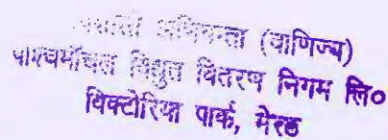 अभियन्ता (वाणिज्य)
पश्चिमांचल विद्युत वितरण निगम लि०
विक्टोरिया पार्क, मेरठ